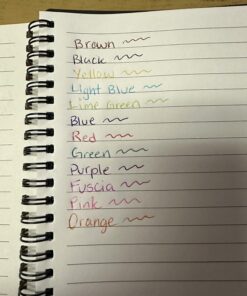 Brown
Black
Yellow
Light Blue
Lime Green
Blue
Red
Green
Purple
Fuscia
Pink
Orange